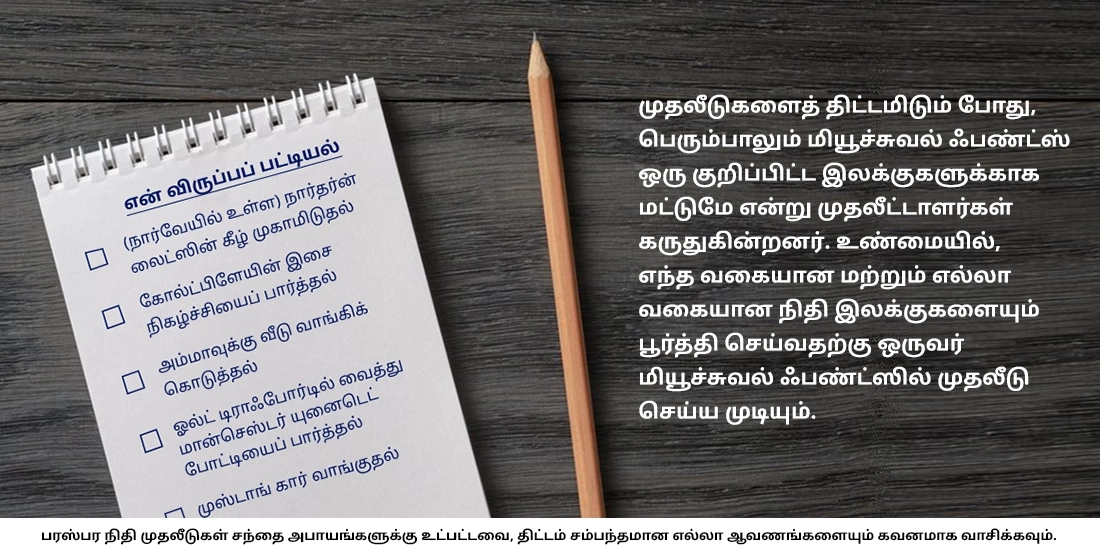 என் விருப்பப் பட்டியல்
(நார்வேயில் உள்ள) நார்தர்ன்
லைட்ஸின் கீழ் முகாமிடுதல்
கோல்ட்பிளேயின் இசை
நிகழ்ச்சியைப் பார்த்தல்
அம்மாவுக்கு வீடு வாங்கிக்
கொடுத்தல்
ஓல்ட் டிராஃபோர்டில் வைத்து
மான்செஸ்டர் யுனைடெட்
போட்டியைப் பார்த்தல்
முஸ்டாங் கார் வாங்குதல்
முதலீடுகளைத் திட்டமிடும் போது,
பெரும்பாலும் மியூச்சுவல் ஃபண்ட்ஸ்
ஒரு குறிப்பிட்ட இலக்குகளுக்காக
மட்டுமே என்று முதலீட்டாளர்கள்
கருதுகின்றனர். உண்மையில்,
எந்த வகையான மற்றும் எல்லா
வகையான நிதி இலக்குகளையும்
பூர்த்தி செய்வதற்கு ஒருவர்
மியூச்சுவல் ஃபண்ட்ஸில் முதலீடு
செய்ய முடியும்.
பரஸ்பர நிதி முதலீடுகள் சந்தை அபாயங்களுக்கு உட்பட்டவை, திட்டம் சம்பந்தமான எல்லா ஆவணங்களையும் கவனமாக வாசிக்கவும்.